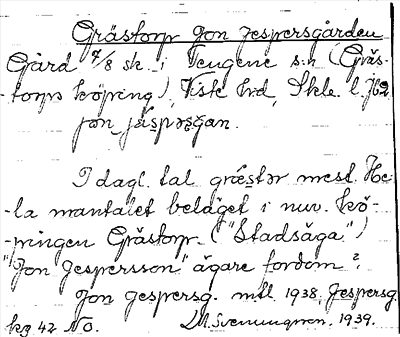 Grästorp Jon Jespersgården
Gård 7/8 sk. i Tengene s:n (Gräs-
-torps köping), Viste hd, Skbg. l.
jon jäspəsgan.
I dagl. tal græstər mest. He-
-la mantalet beläget i nuv. kö-
-pingen Grästorp. ("Stadsäga")
"Jon Jespersson" ägare fordom?
Jon Jespersg. mtl. 1938. Jespersg.
kg 42 NO. D. M. Svenungsson. 1939.